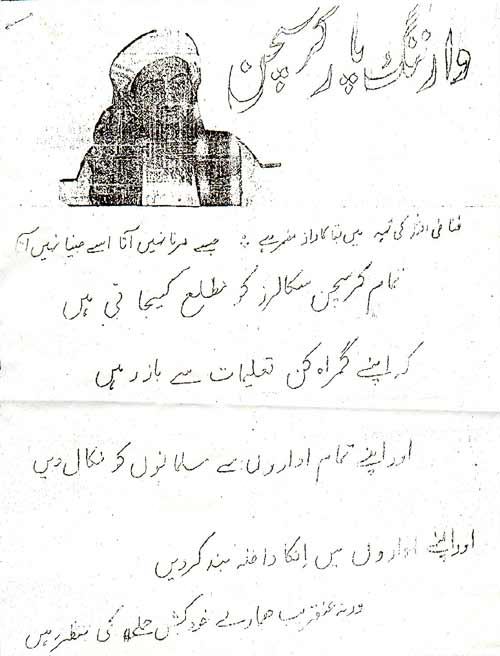 وارننگ پار کرسچن
فنا فی اللہ کی تہہ میں بقا کا راز مضمر ہے جسے مرنا نہیں آتا اسے جینا نہیں آتا
تمام کرسچن سکالرز کو مطلع کیجاتی ہیں
کہ اپنے گمراہ کن تعلیمات سے باز رہیں
اور اپنے تمام اداروں سے مسلمانوں کو نکال دیں
اور اپنے اداروں میں اِنکا داخلہ بند کر دیں
ورنہ عنقریب ہمارے خودکش حملے کی منتظر ہیں